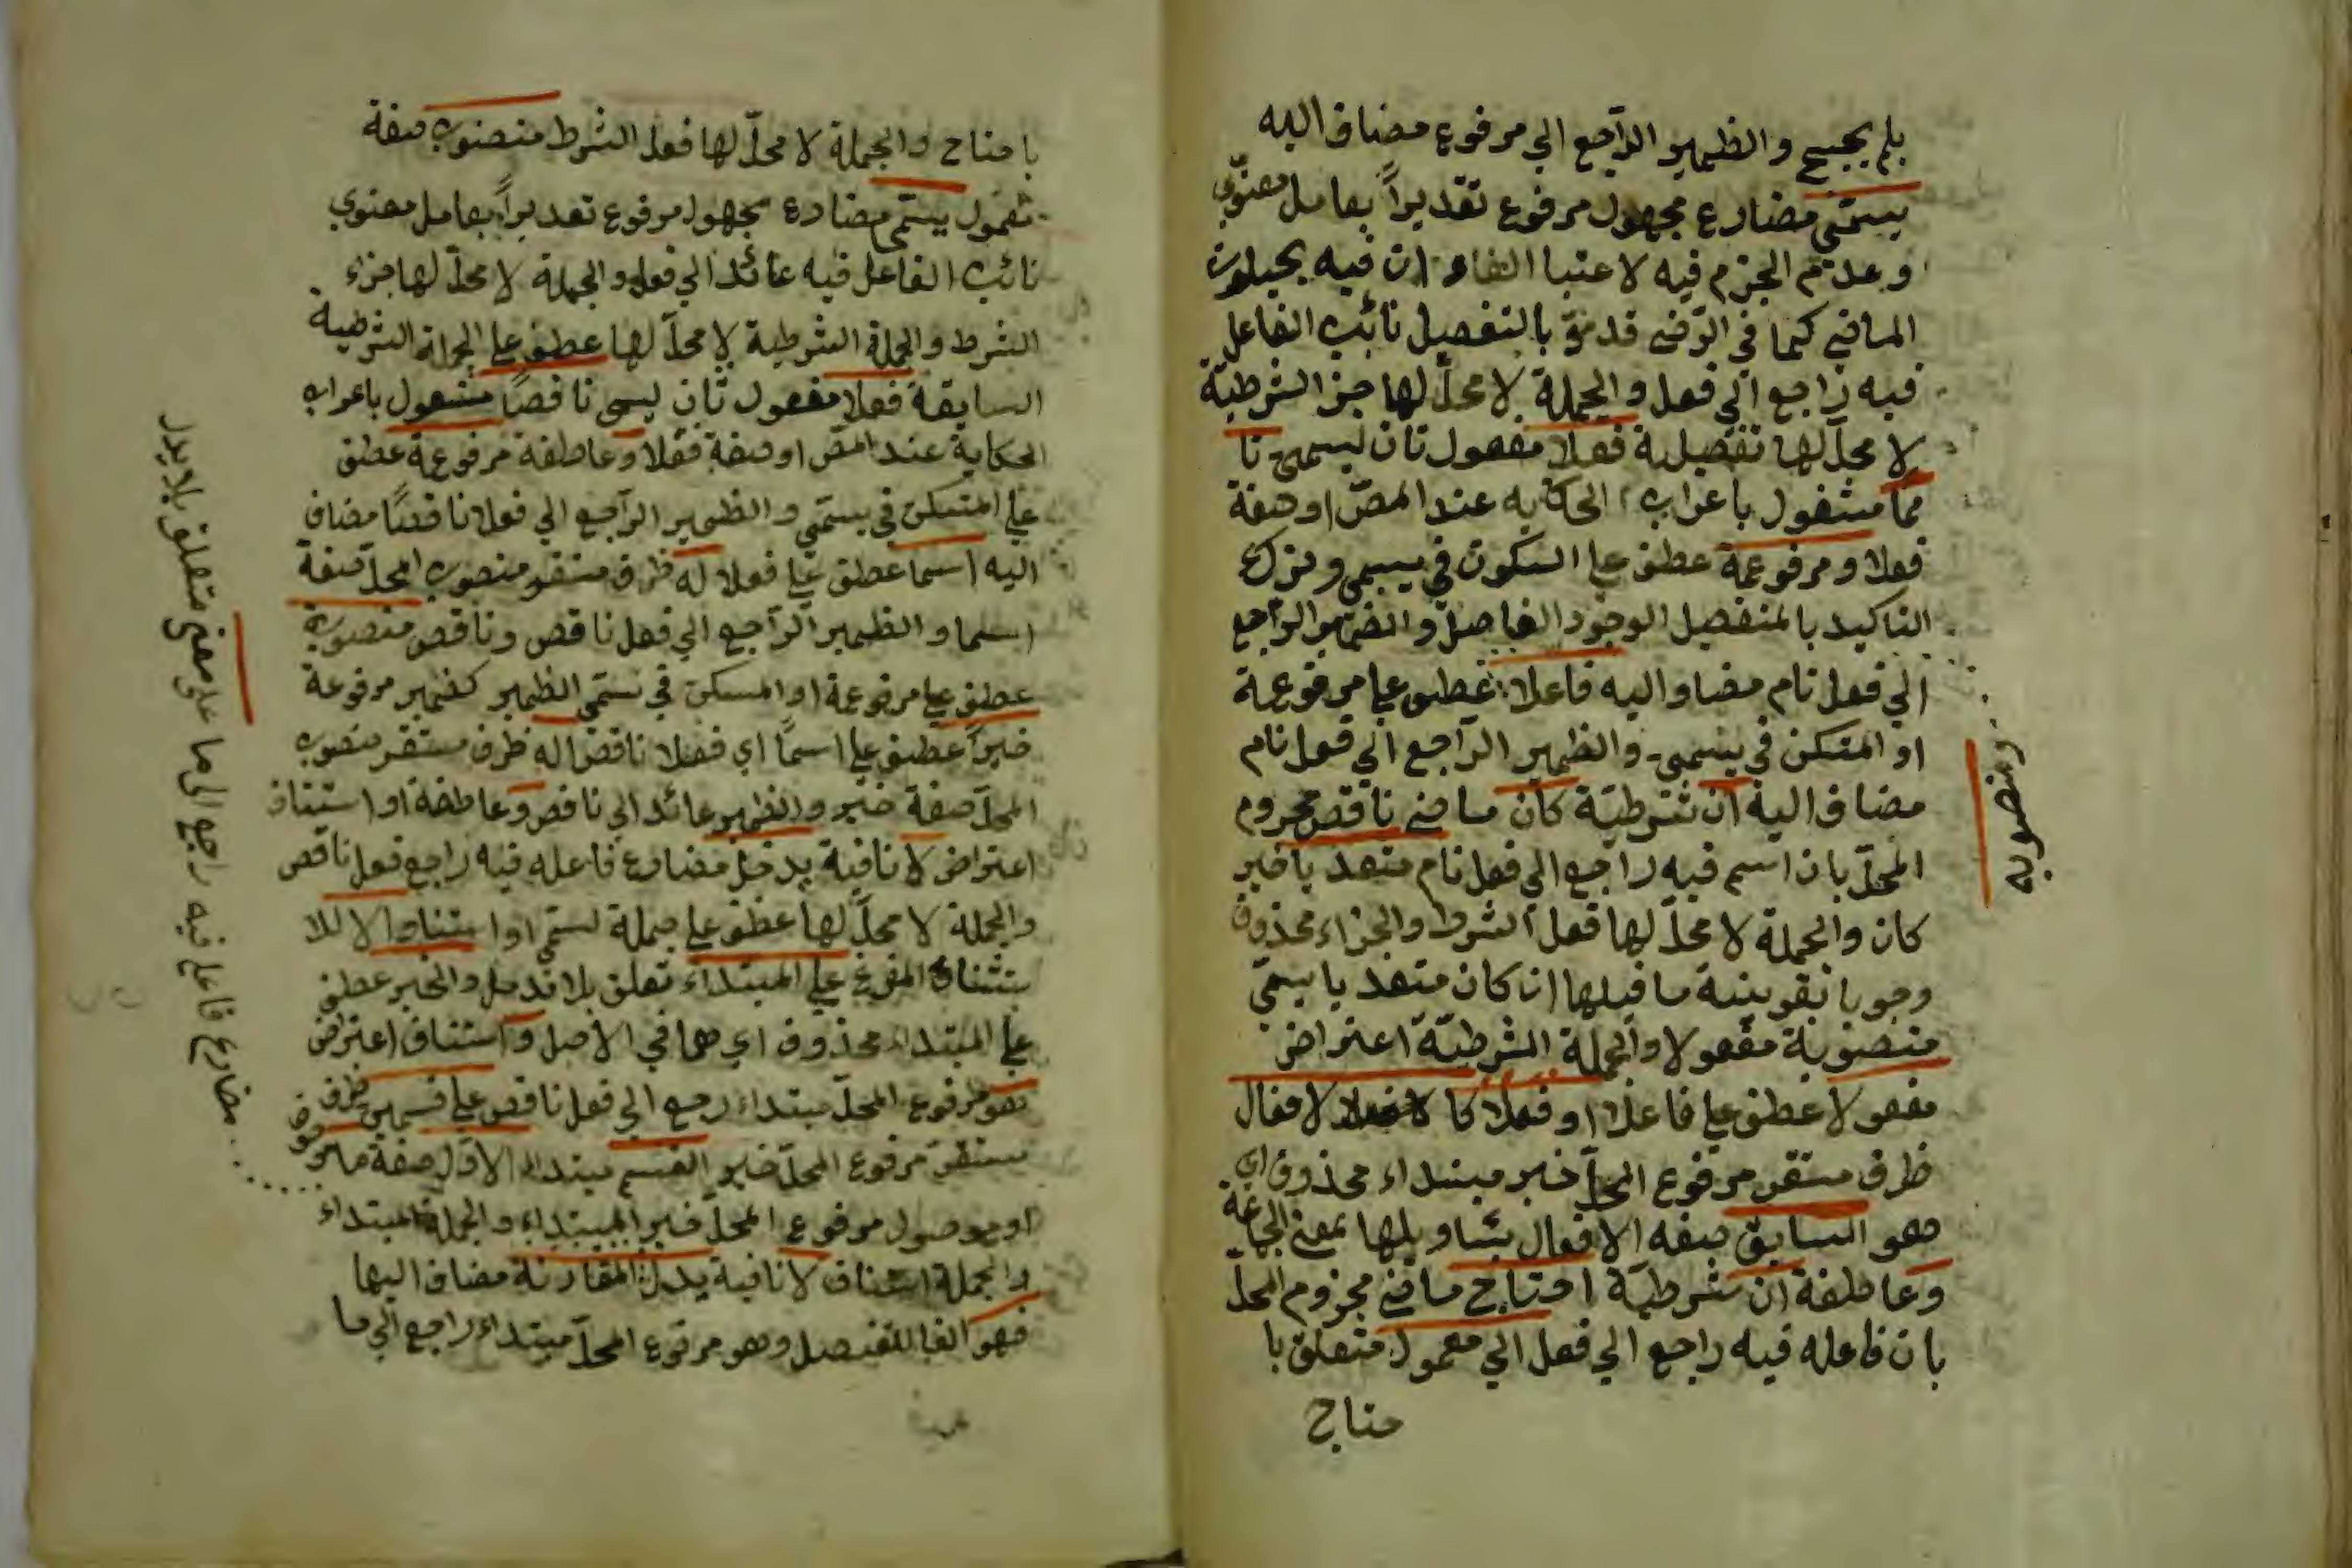 بلم يجيح والظمير الراجع الي مرفوع مضاف اليه
يسمي مضارع مجهول مرفوع تقديراً بعامل معنوي
وعدم الجزم فيه لا عتبا الفاء ان فيه
الماضي كما في الرضي قد مرّ بالتفصيل نائب الفاعل
فيه راجع الي فعل والجملة لا محلّ لها جزا الشرطيّة
لا محلّ لها تفصيلية فعلا مفعول ثان ليسمي تا
مّا مشغول باعراب الحكايه عند المصّ او صفة
فعلا ومرفوعة عطف علي السكون في يسمي وترك
التاكيد بالمنفصيل الوجود الفاصل والضمير الراجع
الي فعل تام مضاف اليه فاعلا عطف علي مرفوعة
او المتسكن في يسمي والظمير الراجع الي فعل تام
مضاف اليه ان شرطيّة كان ماضي ناقص مجزوم
المحلّ بان اسم فيه راجع الي فعل تام متعد يا خبر
كان والجملة لا محلّ لها فعل الشرط والجزاء محذوف
وجوبا بقوينة ما قبلها ان كان متعد يا يسمّي
منصوبة مفعولا والجملة الشرطيّة اعتراض
مفعولا عطف علي فاعلا او فعلا كا لافعال
ظرف مستقر مرفوع المحلّ خبر مبتداء محذوف اي
هو السابق صفه الافعال بتاويلها بمعني الجماعة
وعاطفة ان شرطيّة احتاج ماضي مجزوم المحلّ
بان فاعله فيه راجع الي فعل الي معمول متعلق با
حتاج
ومنصوبه
با حتاج والجملة لا محلّ لها فعل الشرط منصوب صفة
معمول يسمّي مضارع مجهول مرفوع تقديراً بعامل معنوي
نائب الفاعل فيه عائد الي فعل والجملة لا محلّ لها جزاء
الشرط والجملة الشرطية لا محلّ لها عطف علي الجملة الشرطية
السابقة فعلا مفعول ثان ليسمي ناقصاً مشغول باعراب
الحكاية عند المصّ او صفة فعلا وعاطفة مرفوعة عطف
علي المتسكن في يسمّي والظمير الراجع الي فعلا ناقصًا مضاف
اليه اسما عطف علي فعلا له ظرف مستقر منصوب المحلّ صفة
اسلما والظمير الراجع الي فعل ناقص وناقص منصوبة
عطف علي مرفوعة او المسكن في تسمّي الظمير كضمير مرفوعة
خبراً عطف علي اسماً اي فعلا ناقصا له ظرف مستقر منصوب
المحلّ صفة خبر والظمير عائد الي ناقص وعاطفة او استناف
اعتراض لا نافية يدخل مضارع فاعله فيه راجع فعل ناقص
والجملة لا محلّ لها عطف علي جملة تسمّي او استناف الا للا
ستثناء المفرغ علي المبتداء تعلق بلا تدخل والخبر عطف
علي المبتداء محذوف اي هما في الاصل و استناف اعتراض
هو مرفوع المحلّ مبتداء رجع الي فعل ناقص علي قسمين ظرف
مستقر مرفوع المحلّ خبر القسم مبتداء الاوّل صفة ما موصوف
او موصول مرفوع المحلّ خبر المبتداء والجملة المبتداء
والجملة استناف لا نافية يدل المقارنة مضاف اليها
فهو الفا للتفصيل وهو مرفوع المحلّ مبتداء راجع الي ما
مضارع فاعل فيه راجع الى ما على معنى متعلق بلا يدل